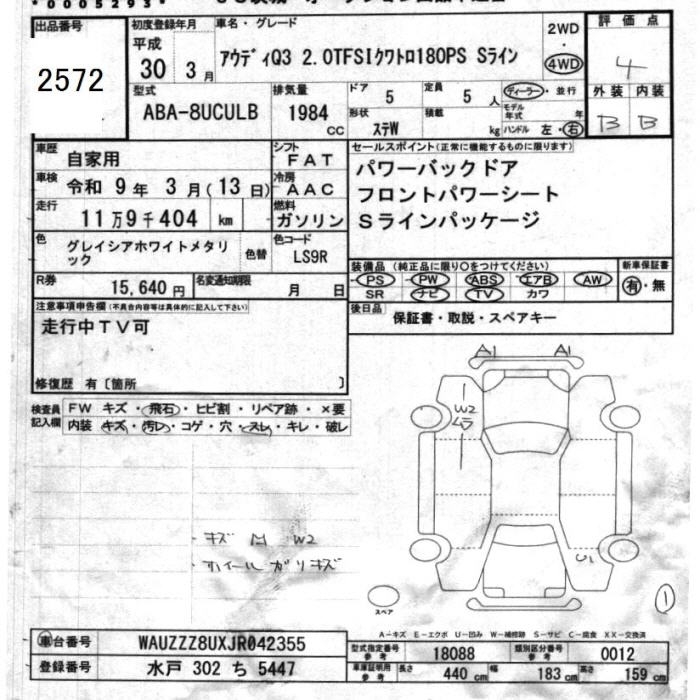 *00005293*
出品番号
2572
初度登録年月
平成
30 3 月
車名・グレード
アウディQ3 2.0TFSIクワトロ180PS Sライン
2WD
・
4WD
評価点
4
外装 内装
B B
型式
ABA-8UCULB
排気量
1984
CC
ドア 5
定員 5 人
形状 ステW
積載 kg
ディーラー・並行
モデル年式 年
ハンドル 左・右
車歴 自家用
車検 令和 9年 3月(13日)
走行 11万9千404 km
シフト FAT
冷房 AAC
燃料 ガソリン
色 グレイシアホワイトメタリック
色替
色コード LS9R
R券 15,640円
名変通知期限 月 日
セールスポイント(正常に機能するものに限ります)
パワーバックドア
フロントパワーシート
Sラインパッケージ
装備品 (純正品に限り○をつけてください)
PS・PW・ABS・エアB・AW
SR ナビ・TV・カワ
新車保証書
有・無
後日品 保証書・取説・スペアキー
注意事項申告欄(不具合内容等は具体的に記入して下さい)
走行中TV可
修復歴 有〔箇所 〕
検査員記入欄
FW キズ・飛石・ヒビ割・リペア跡・×要
内装 キズ・汚レ・コゲ・穴・スレ・キレ・破レ
キズ M W2
ホイール ガリキズ
A1 A1
W2
ムラ
U1
スペア
1
A-キズ E-エクボ U-凹み W-補修跡 S-サビ C-腐食 XX-交換済
車台番号 WAUZZZ8UXJR042355
登録番号 水戸 302 ち 5447
型式指定番号 参考 18088
類別区分番号 参考 0012
車庫証明用 参考 長さ 440 cm 幅 183 cm 高さ 159 cm